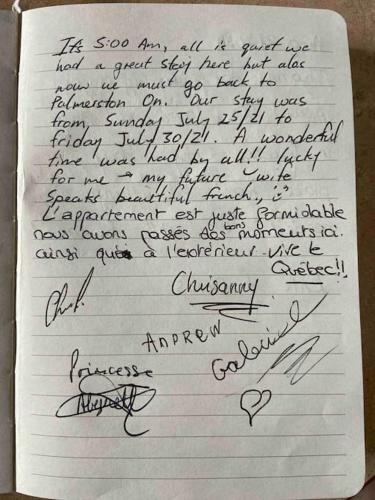 It's 5:00 Am, all is quiet we
had a great stay here but alas
now we must go back to
Palmerston On. Our stay was
from Sunday July 25/21 to
friday July 30/21. A wonderful
time was had by all!! lucky
for me → my future wife
Speaks beautiful french,,
L'appartement est juste formidable
nous avons passés des bons moments ici.
ainsi que à l'extérieur. Vive le
Québec!!
Chrisanny
ANDREW
Gabriel
Princesse